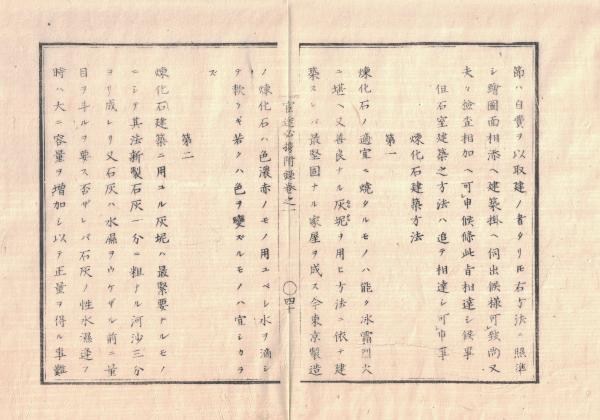 節ハ自費ヲ以取建ノ者タリ圧右方法ニ照準
シ繪圖面相添ヘ建築掛ヘ伺出候様可致尚又
夫々檢査相加ヘ可申候條此旨相達シ候事
但石室建築之方法ハ追テ相達シ可申事
煉化石建築方法
第一
煉化石ノ適宜ニ燒タルモノハ能ク氷霜烈火
ニ堪ヘ又善良ナル灰泥ヲ用ヒ方法ニ依テ建
築スレバ最堅固ナル家屋ヲ成ス今東京製造
官途必携附録巻之一
四十
ノ煉化石ハ色濃赤ノモノ用ユベシ水ヲ滴シ
テ軟ラギ若クハ色ヲ變ズルモノハ宜シカラ
ズ
第二
煉化石建築ニ用ユル灰泥ハ最緊要ナルモノ
ニシテ其法新製石灰一分ニ粗ナル河沙三分
ヨリ成レリ又石灰ハ水濕ヲウケザル前ニ量
目ヲ斗ルヲ要ス否ザレバ石灰ノ性水濕逢フ
時ハ大ニ容量ヲ増加シ以テ正量ヲ得ル事難